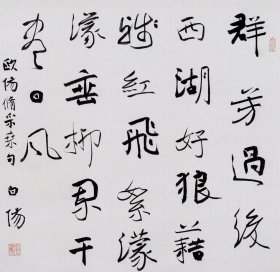 群芳過後
西湖好狼藉
殘紅飛絮濛
濛垂柳闌干
盡日風
歐陽脩采桑句 白陽